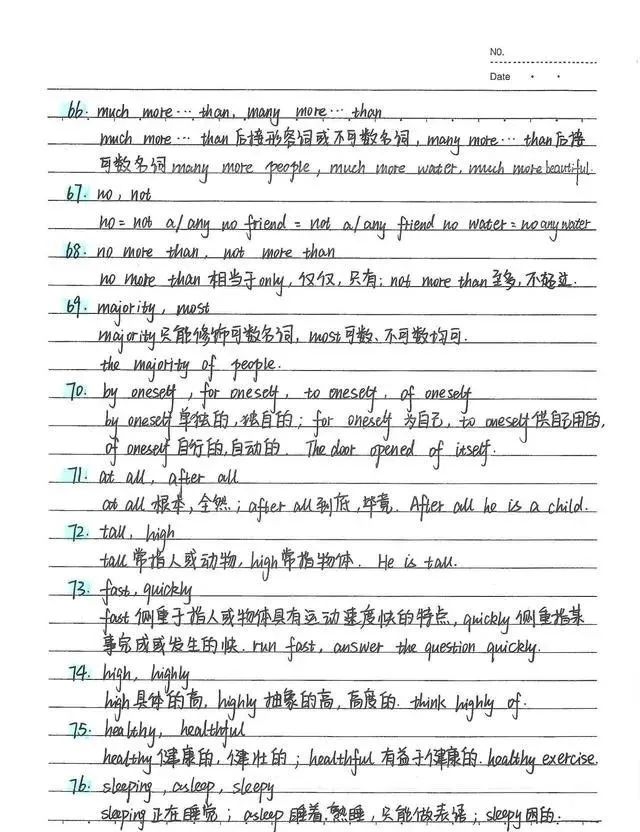 NO.
Date
66. much more… than, many more… than
much more… than后接形容词或不可数名词, many more… than后接
可数名词 many more people, much more water, much more beautiful.
67. no, not
no = not a/any no friend = not a/any friend no water = no any water
68. no more than, not more than
no more than 相当于only, 仅仅, 只有; not more than 至多, 不超过.
69. majority, most
majority只能修饰可数名词, most可数、不可数均可.
the majority of people.
70. by oneself, for oneself, to oneself, of oneself
by oneself 单独的, 独自的; for oneself 为自己, to oneself 供自己用的,
of oneself 自行的, 自动的. The door opened of itself.
71. at all, after all
at all 根本, 全然; after all 到底, 毕竟. After all he is a child.
72. tall, high
tall 常指人或动物, high 常指物体. He is tall.
73. fast, quickly
fast 侧重于指人或物体具有运动速度快的特点, quickly 侧重指某
事完成或发生的快. run fast, answer the question quickly.
74. high, highly
high 具体的高, highly 抽象的高, 高度的. think highly of.
75. healthy, healthful
healthy 健康的, 健壮的; healthful 有益于健康的. healthy exercise.
76. sleeping, asleep, sleepy
sleeping 正在睡觉; asleep 睡着, 熟睡, 只能做表语; sleepy 困的.